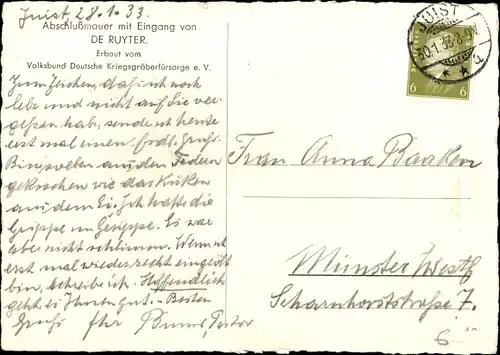 Juist, 28.1.33.
Abschlußmauer mit Eingang von
DE RUYTER.
Erbaut vom
Volksbund Deutsche Kriegsgräberfürsorge e. V.
Zum Zeichen, daß ich noch
lebe und nicht auf Sie ver-
gessen hab, sende ich heute
erst mal einen frdl. Gruß.
Bin soeben aus den Federn
gekrochen wie das Küken
aus dem Ei. Ich hatte die
Grippe im Gerippe. Es war
aber nicht schlimm. Wenn ich
erst mal wieder recht eingeübt
bin, schreibe ich. Hoffentlich
geht es Ihnen gut. - Besten
Gruß Ihr Pastor
JUIST
30.1.33.8-9V
a
6 6
Frau Anna Baaken
Münster Westf.
Scharnhorststraße 7.
6